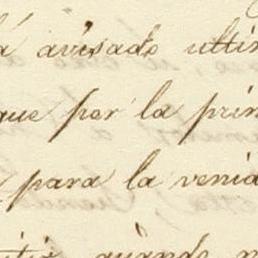 á avisado ultim
que por la prim
para la venia
quando